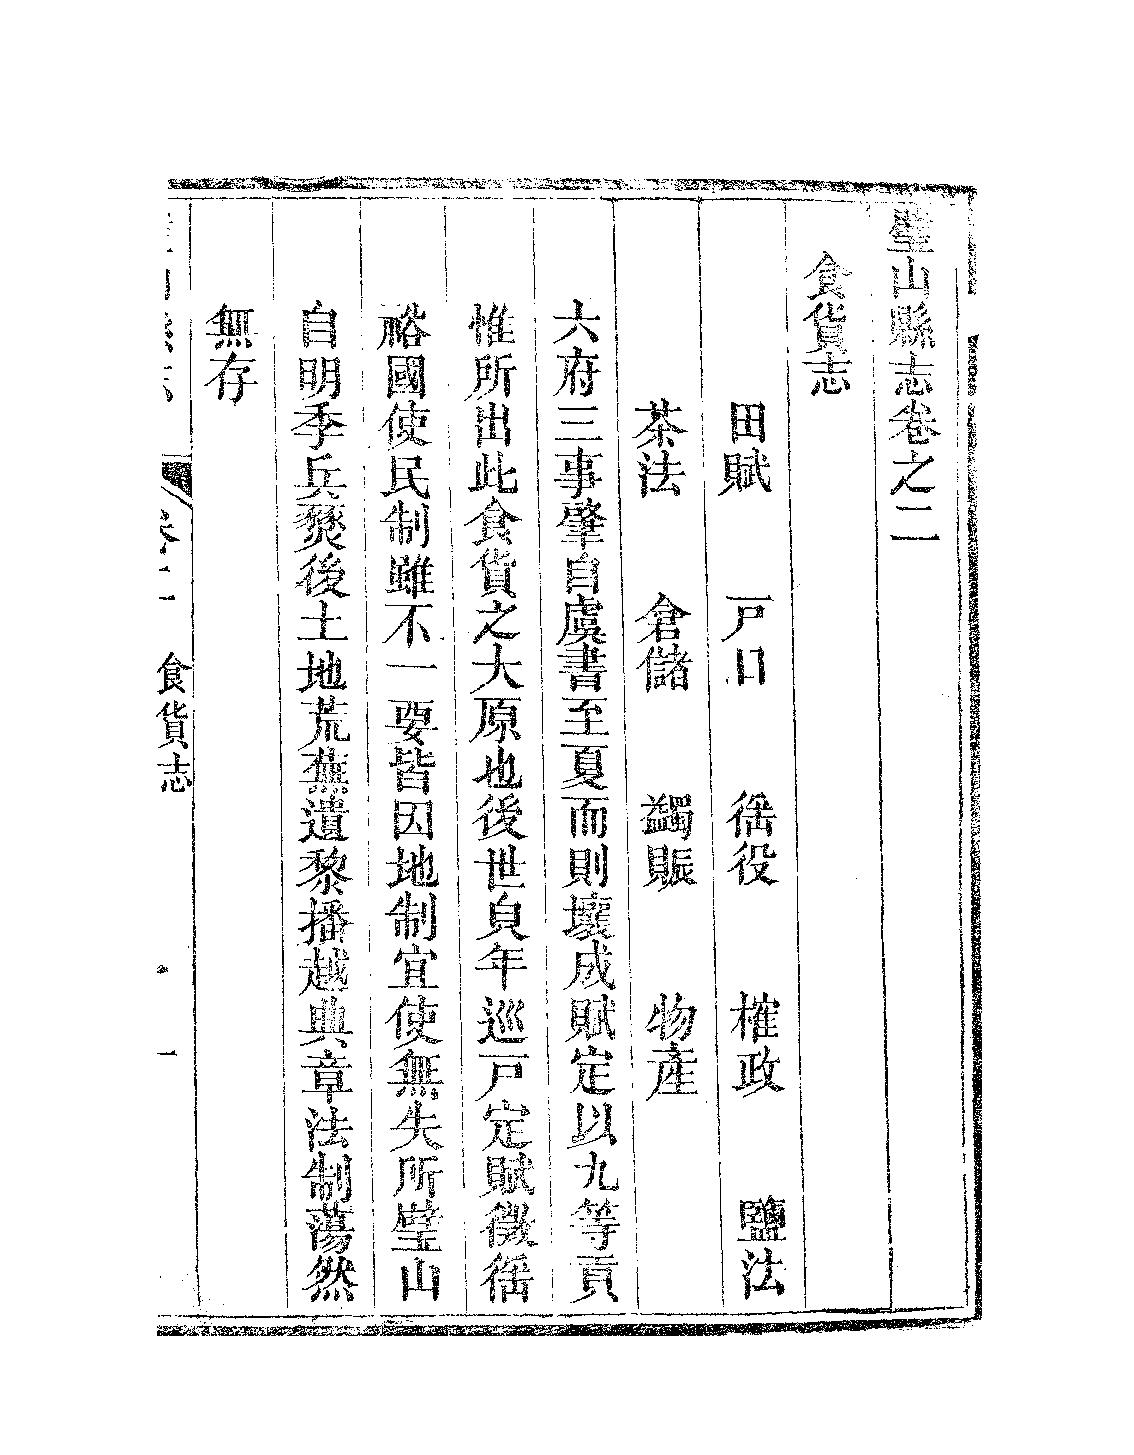 璧山縣志卷之二
食貨志
田賦 戸口 徭役 榷政 鹽法
茶法 倉儲 蠲賑 物產
六府三事肇自虞書至夏而則壤成賦定以九等貢
惟所出此食貨之大原也後世貞年巡戸定賦徵徭
裕國使民制雖不一要皆因地制宜使無失所璧山
自明季兵燹後土地荒蕪遺黎播越典章法制蕩然
無存
卷二 食貨志 一